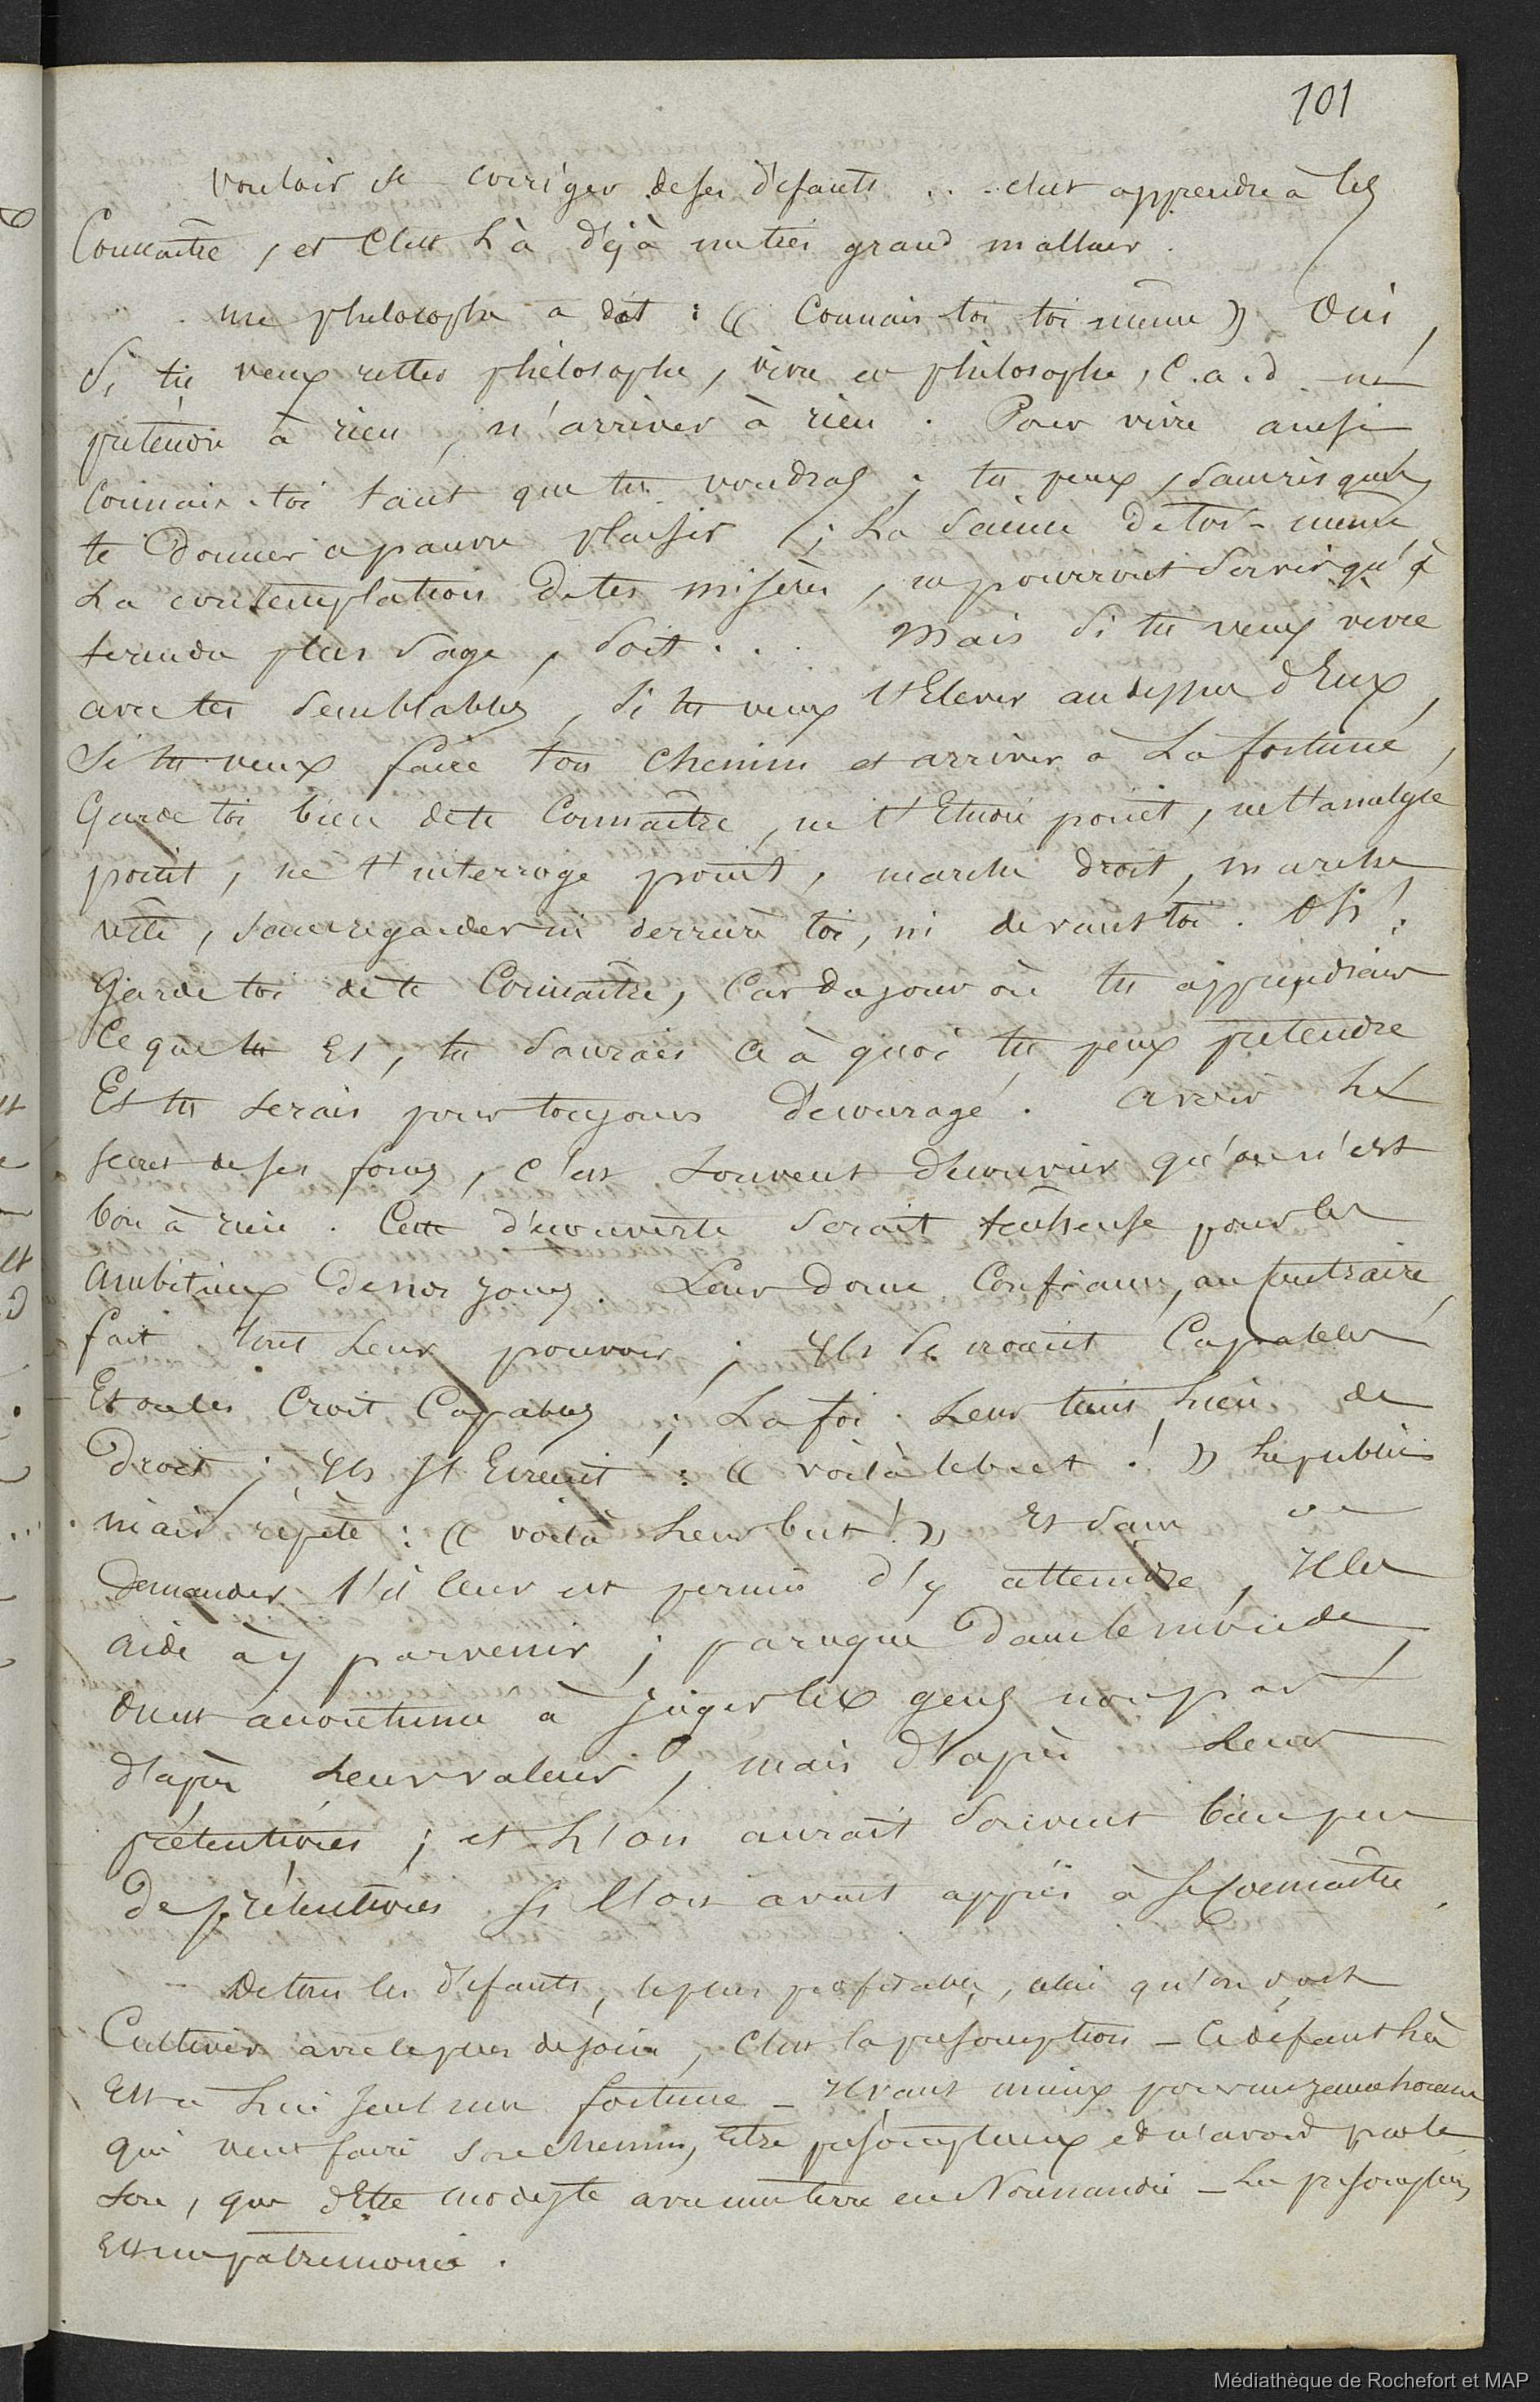 101
Vouloir se corriger de ses défauts ... c'est apprendre à les
Connaître, et c'est là déjà un très grand malheur.
Un philosophe a dit : « Connais toi toi même » Oui,
Si tu veux rester philosophe, vivre en philosophe, c.a.d. ne
prétendre à rien, n'arriver à rien. Pour vivre ainsi
Connais-toi tant que tu voudras ; tu peux, sans risques,
te donner ce pauvre plaisir ; La Science de toi-même,
La contemplation de tes misères, ne pourront servir qu'à
te rendre plus sage, soit... Mais si tu veux vivre
avec tes semblables, si tu veux t'élever au dessus d'Eux,
Si tu veux faire ton chemin et arriver à La fortune,
Garde toi bien de te Connaître, ne t'Etudie point, ne t'analyse
point, ne t'interroge point, marche droit, marche
vite, sans regarder ni derrière toi, ni devant toi. Oh !
Garde toi de te Connaître, Car du jour où tu apprendrais
Ce que tu es, tu saurais ce à quoi tu peux prétendre
Et tu serais pour toujours découragé. Avoir le
secret de ses forces, c'est souvent découvrir qu'on n'est
bon à rien. Cette découverte serait fâcheuse pour les
Ambitieux de nos jours. Leur douce Confiance, au Contraire,
fait tout leur pouvoir ; Ils se croient Capables
Et on les Croit Capables ; La foi leur tient lieu de
Droit ; Ils s'Ecrient : « voilà le but ! » Le public
niais répète : « voilà leur but ! » Et sans se
Demander s'il leur est permis d'y atteindre, Il les
aide à y parvenir ; parce que dans le monde
On est accoutumé à juger les gens non pas
d'après leur valeur, mais d'après leurs
prétentions ; et l'on aurait souvent bien peu
De prétentions si l'on avait appris à se Connaître.
De tous les défauts, le plus profitable, celui qu'on doit
Cultiver avec le plus de soin, c'est la présomption — Ce défaut là
Est à lui seul une fortune — Il vaut mieux pour un jeune homme
qui veut faire son chemin, être présomptueux et n'avoir pas le
sou, que d'Etre modeste avec une terre en Normandie — La présomption
Est un patrimoine.
Médiathèque de Rochefort et MAP